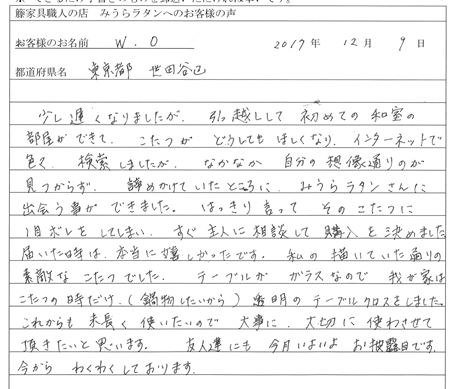 籐家具職人の店 みうらラタンへのお客様の声
お客様のお名前 W.O 2017年 12月 9日
都道府県名 東京都 世田谷区
少し遅くなりましたが、引越しして 初めての 和室の
部屋ができて、こたつが どうしてもほしくなり、インターネットで
色々、検索しましたが、なかなか 自分の想像通りのが
見つからず、諦めかけていたところに、みうらラタンさんに
出会う事ができました。はっきり言って そのこたつに
1目ボレをしてしまい、すぐ主人に相談して購入を決めました
届いた時は、本当に嬉しかったです。私の描いていた通りの
素敵なこたつでした。テーブルが ガラスなので 我が家は
こたつの時だけ、(鍋物したいから) 透明のテーブルクロスをしました。
これからも 末長く使いたいので 大事に、大切に 使わさせて
頂きたいと思います。友人達にも 今月いよいよ お披露目です。
今から わくわくしております。